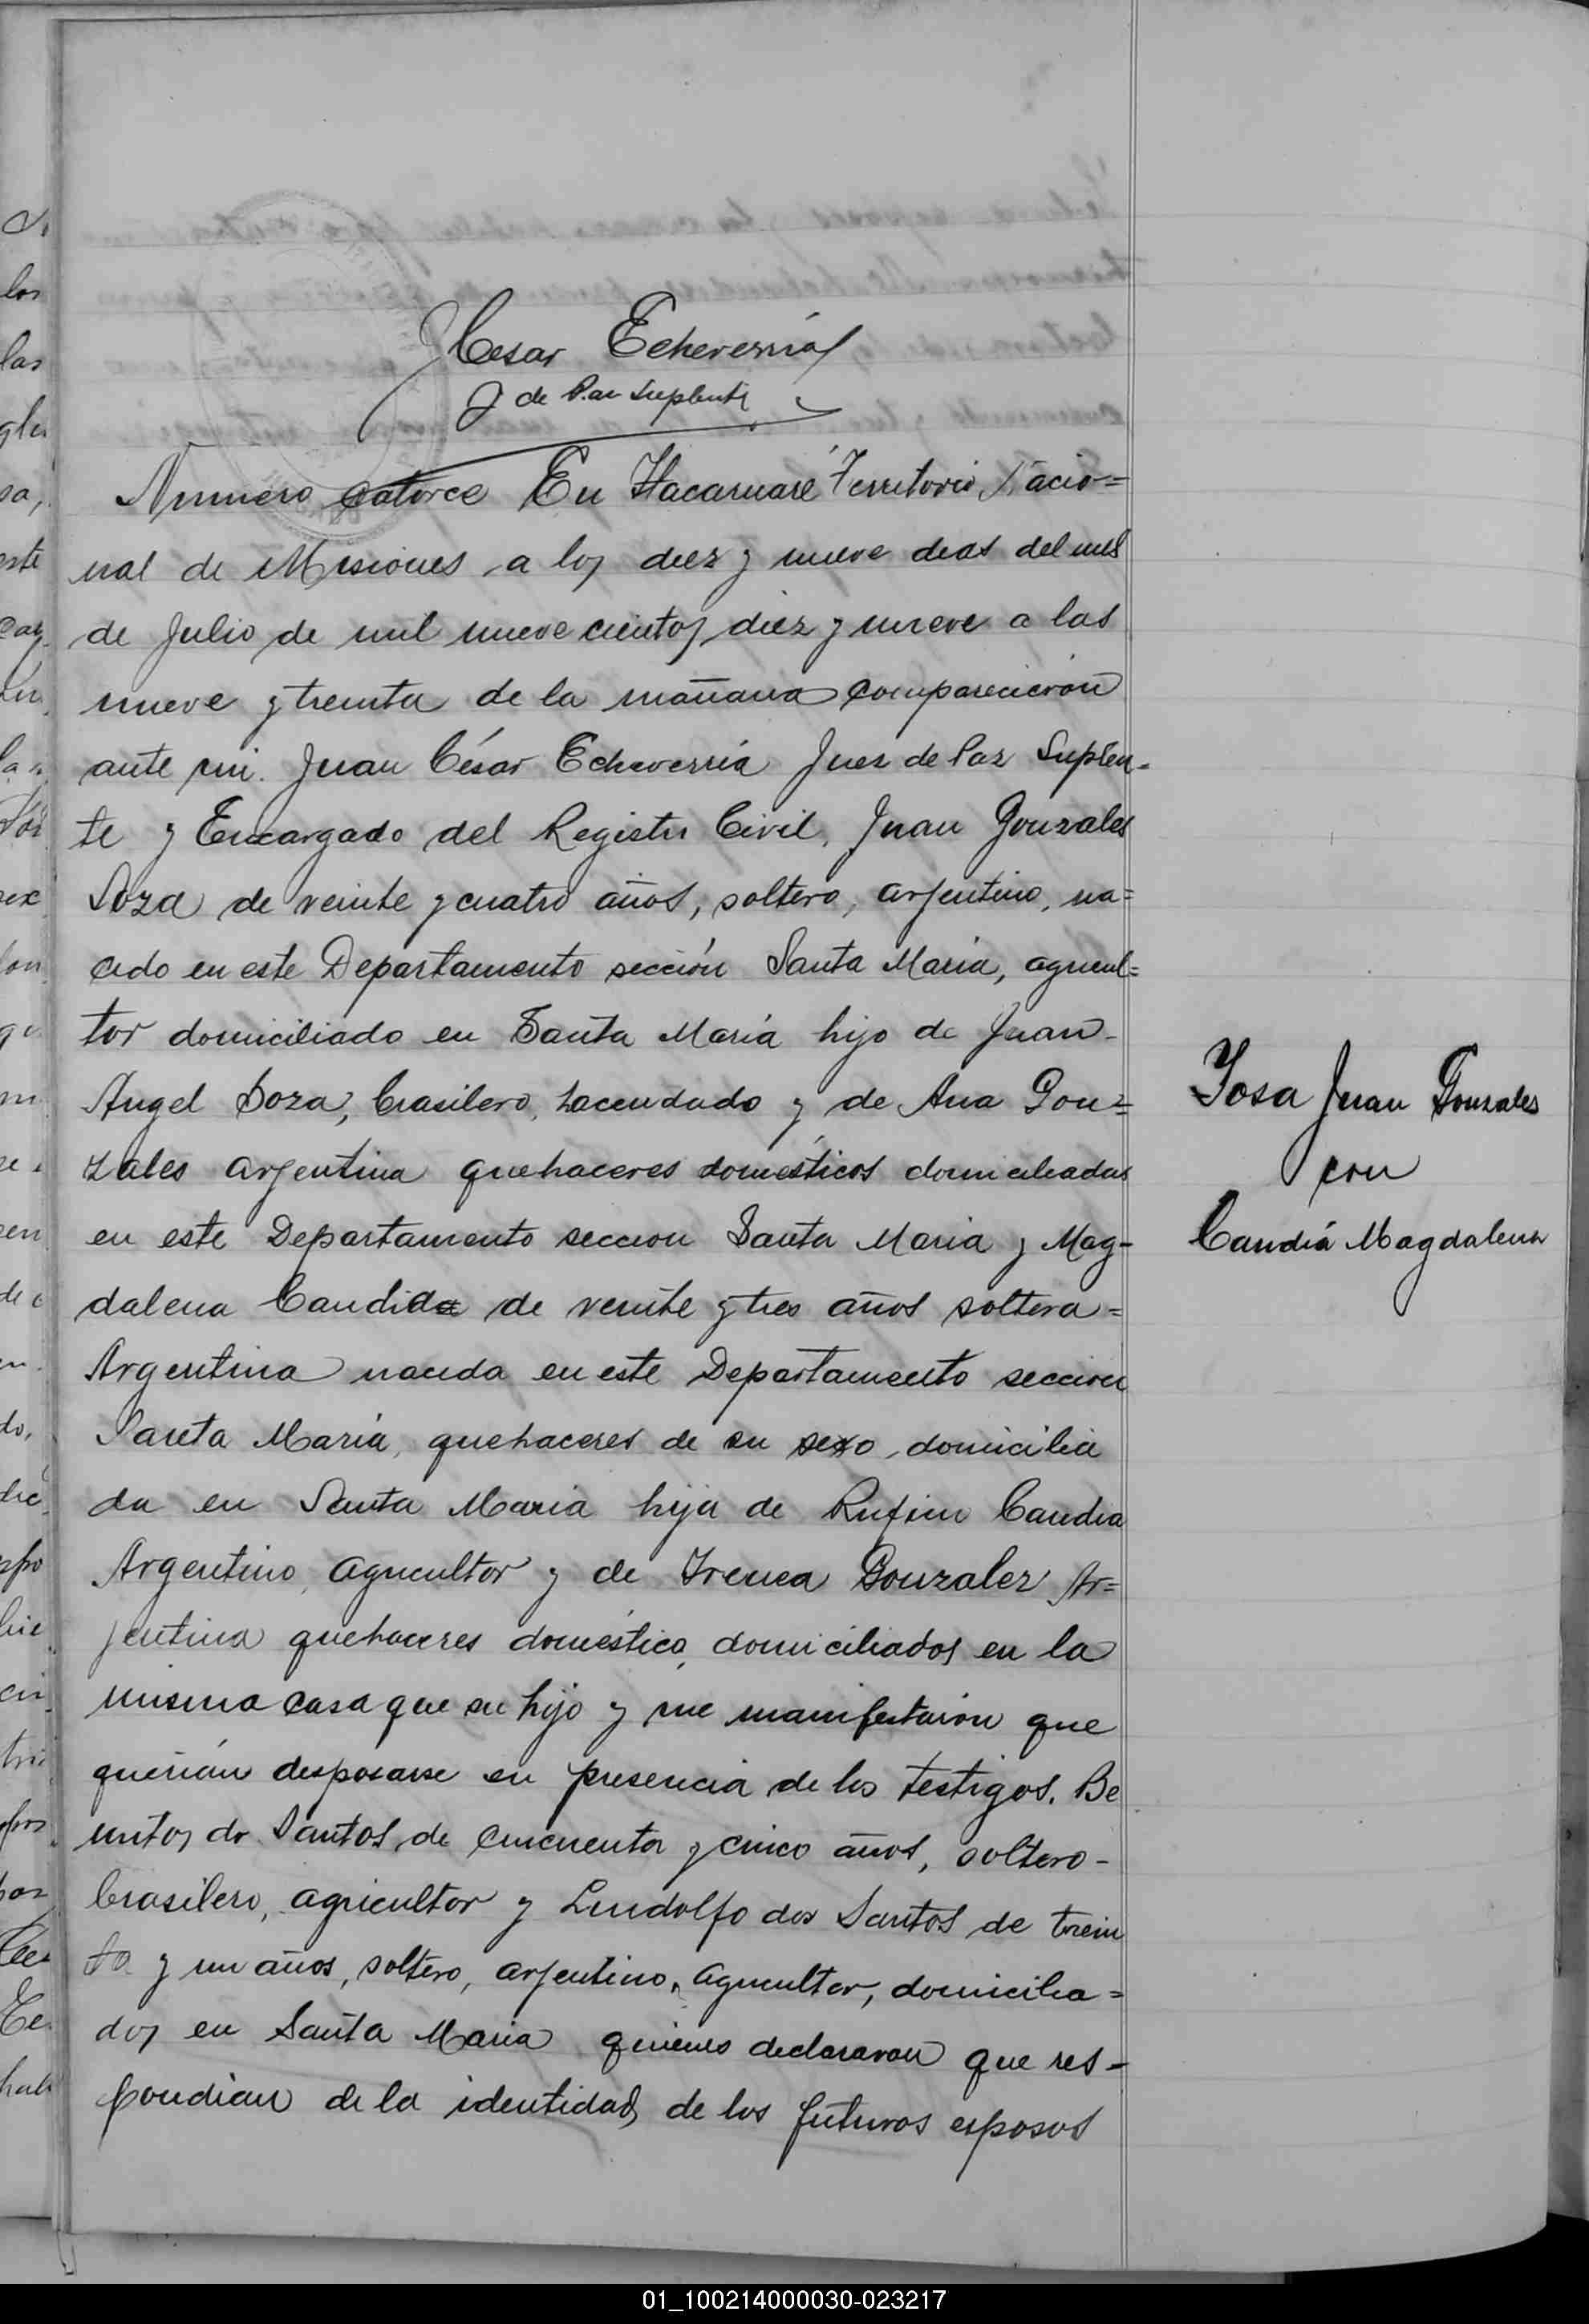 J Cesar Echeverria
J de Paz Suplente
Numero catorce En Itacaruaré Territorio Nacio=
nal de Misiones a los diez y nueve dias del mes
de Julio de mil nueve cientos diez y nueve a las
nueve y treinta de la mañana comparecieron
ante mi. Juan César Echeverria Juez de Paz Suplen-
te y Encargado del Registro Civil, Juan Gonzales
Soza de veinte y cuatro años, soltero, arjentino, na=
cido en este Departamento sección Santa Maria, agricul=
tor domiciliado en Santa María hijo de Juan
Angel Soza, brasilero, hacendado y de Ana Gon=
zales arjentina quehaceres domésticos domiciliados
en este Departamento seccion Santa Maria y Mag-
dalena Candida de veinte y tres años soltera=
Argentina nacida en este Departamento seccion
Santa María, quehaceres de su sexo, domicilia
da en Santa Maria hija de Rufino Candia
Argentino, agricultor y de Irenea Gonzalez Ar=
jentina quehaceres doméstico, domiciliados en la
misma casa que su hijo y me manifestaron que
querian desposarse en presencia de los testigos. Be
nito, do Santos de cincuenta y cinco años, soltero-
brasilero, agricultor y Lindolfo dos Santos de trein
ta y un años, soltero, arjentino, agricultor, domicilia=
dos en Santa Maria quienes declararon que res-
pondian de la identidad de los futuros esposos
Sosa Juan Gonzales
con
Candiá Magdalena
01_100214000030-023217